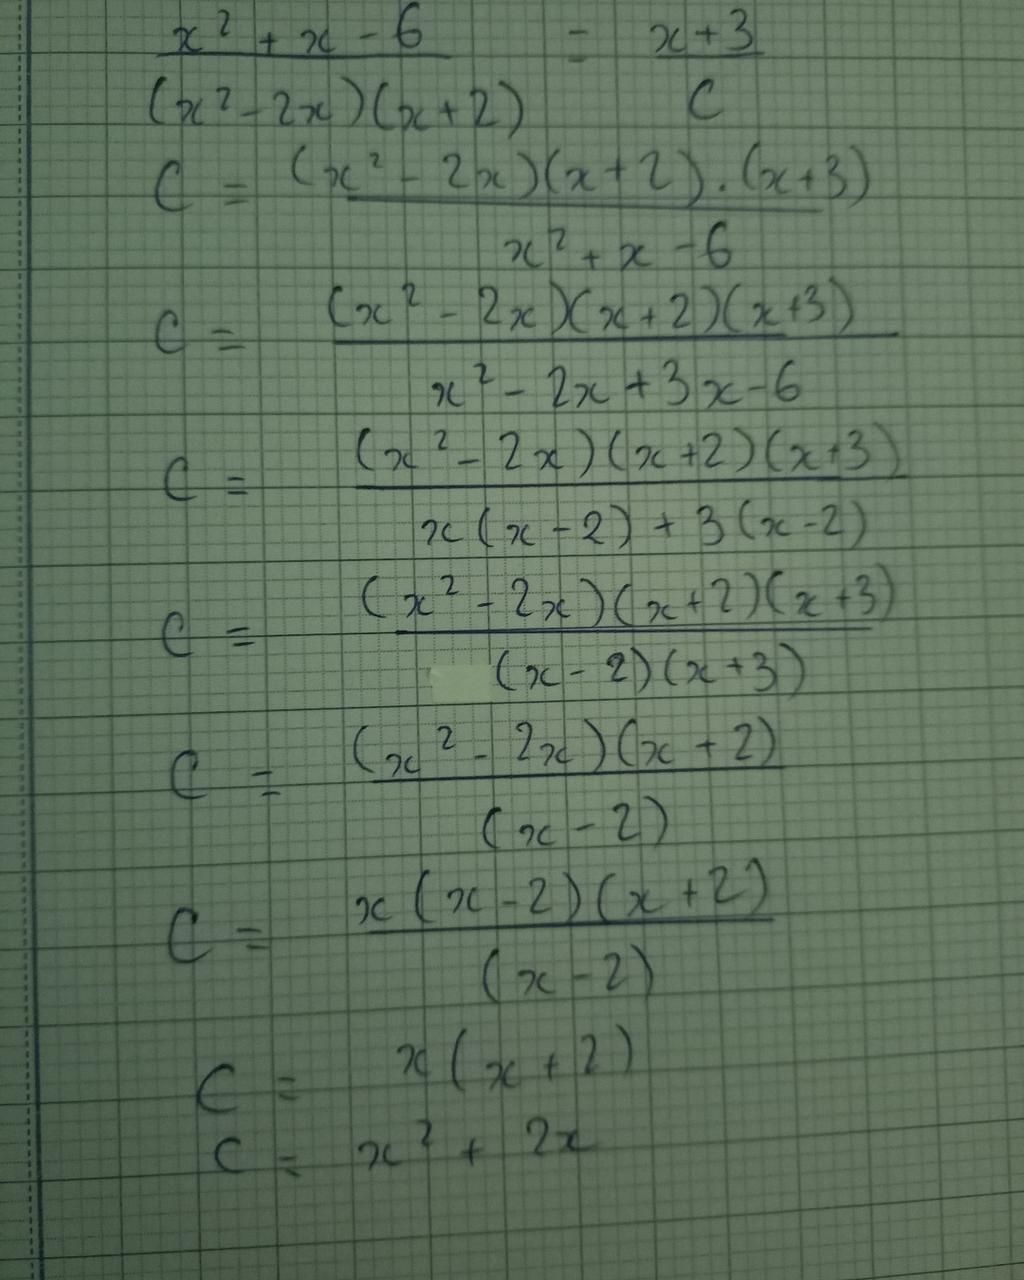 x² + x - 6 = x + 3
(x² - 2x)(x + 2) C
C = (x² - 2x)(x + 2).(x + 3)
x² + x - 6
C = (x² - 2x)(x + 2)(x + 3)
x² - 2x + 3x - 6
C = (x² - 2x)(x + 2)(x + 3)
x(x - 2) + 3(x - 2)
C = (x² - 2x)(x + 2)(x + 3)
(x - 2)(x + 3)
C = (x² - 2x)(x + 2)
(x - 2)
C = x(x - 2)(x + 2)
(x - 2)
C = x(x + 2)
C = x² + 2x